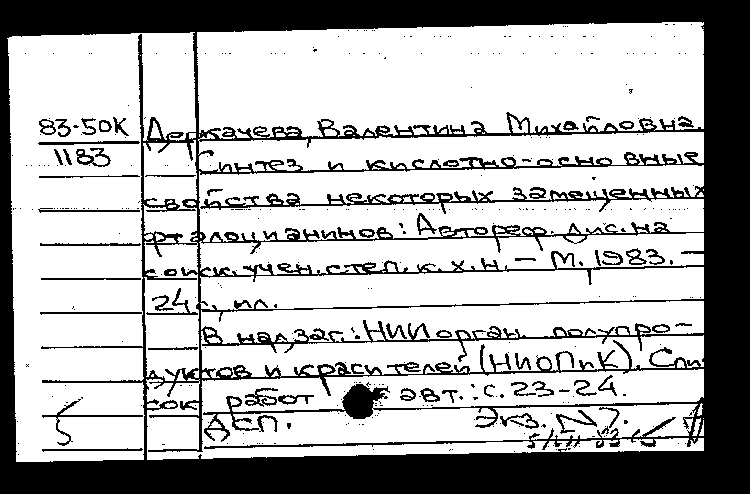 83-50К Деркачева, Валентина Михайловна.
1183 Синтез и кислотно-основные
свойства некоторых замещенных
фталоцианинов: Автореф. дис. на
соиск. учен. степ. к. х. н. — М., 1983. —
24 с., ил.
В надзаг.: НИИ орган. полупро-
дуктов и красителей (НИОПиК). Спи-
сок работ авт.: с. 23-24.
5 ДСП. Экз. N7.